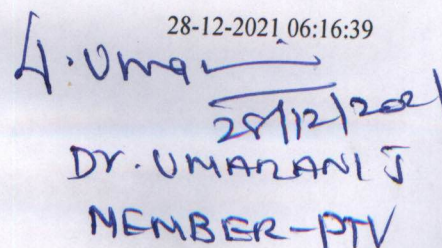 28-12-2021 06:16:39
J. Uma
28/12/2021
Dr. UMARANI J
MEMBER-PTV